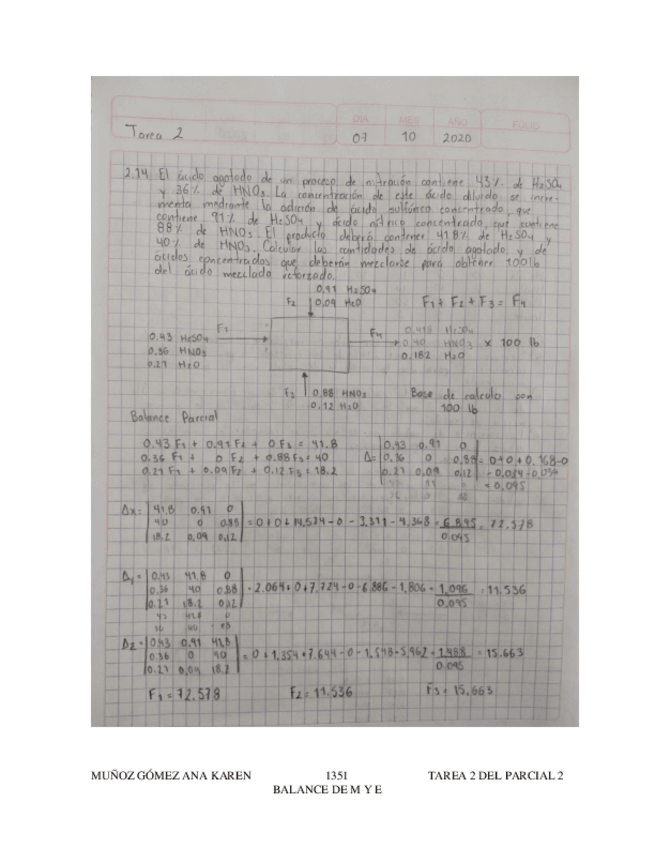 DIA MES AÑO FOLIO
Tarea 2 07 10 2020
2.14 El ácido agotado de un proceso de nitración contiene 43% de H₂SO₄
y 36% de HNO₃. La concentración de este ácido diluido se incre-
menta mediante la adición de ácido sulfúrico concentrado, que
contiene 91% de H₂SO₄ y ácido nítrico concentrado, que contiene
88% de HNO₃. El producto deberá contener 41.8% de H₂SO₄ y
40% de HNO₃. Calcular las cantidades de ácido agotado y de
ácidos concentrados que deberán mezclarse para obtener 100 lb
del ácido mezclado reforzado.
0.91 H₂SO₄
F₂ 0.09 H₂O F₁ + F₂ + F₃ = F₄
0.43 H₂SO₄
0.36 HNO₃
0.21 H₂O
F₄ 0.418 H₂SO₄
0.40 HNO₃ x 100 lb
0.182 H₂O
0.88 HNO₃
0.12 H₂O
Base de calculo son
100 lb
Balance Parcial
0.43 F₁ + 0.91 F₂ + 0 F₃ = 41.8
0.36 F₁ + 0 F₂ + 0.88 F₃ = 40
0.21 F₁ + 0.09 F₂ + 0.12 F₃ = 18.2
Δ= 0.43 0.91 0
0.36 0 0.88 = 0+0+0.168-0
0.21 0.09 0.12 -0.034-0.039
= 0.095
Δx= 41.8 0.91 0
40 0 0.88 = 0+0+14.574-0-3.311-4.368 = 6.895 = 72.578
18.2 0.09 0.12 0.095
0.43 41.8 0
0.36 40 0.88 = 2.064+0+7.724-0-6.886-1.806 = 1.096 = 11.536
0.21 18.2 0.12 0.095
Δz= 0.43 0.91 41.8
0.36 0 40 = 0+1.354+7.644-0-1.548-5.962 = 1.488 = 15.663
0.21 0.09 18.2 0.095
F₁ = 72.578 F₂ = 11.536 F₃ = 15.663
MUÑOZ GÓMEZ ANA KAREN 1351 TAREA 2 DEL PARCIAL 2
BALANCE DE M Y E